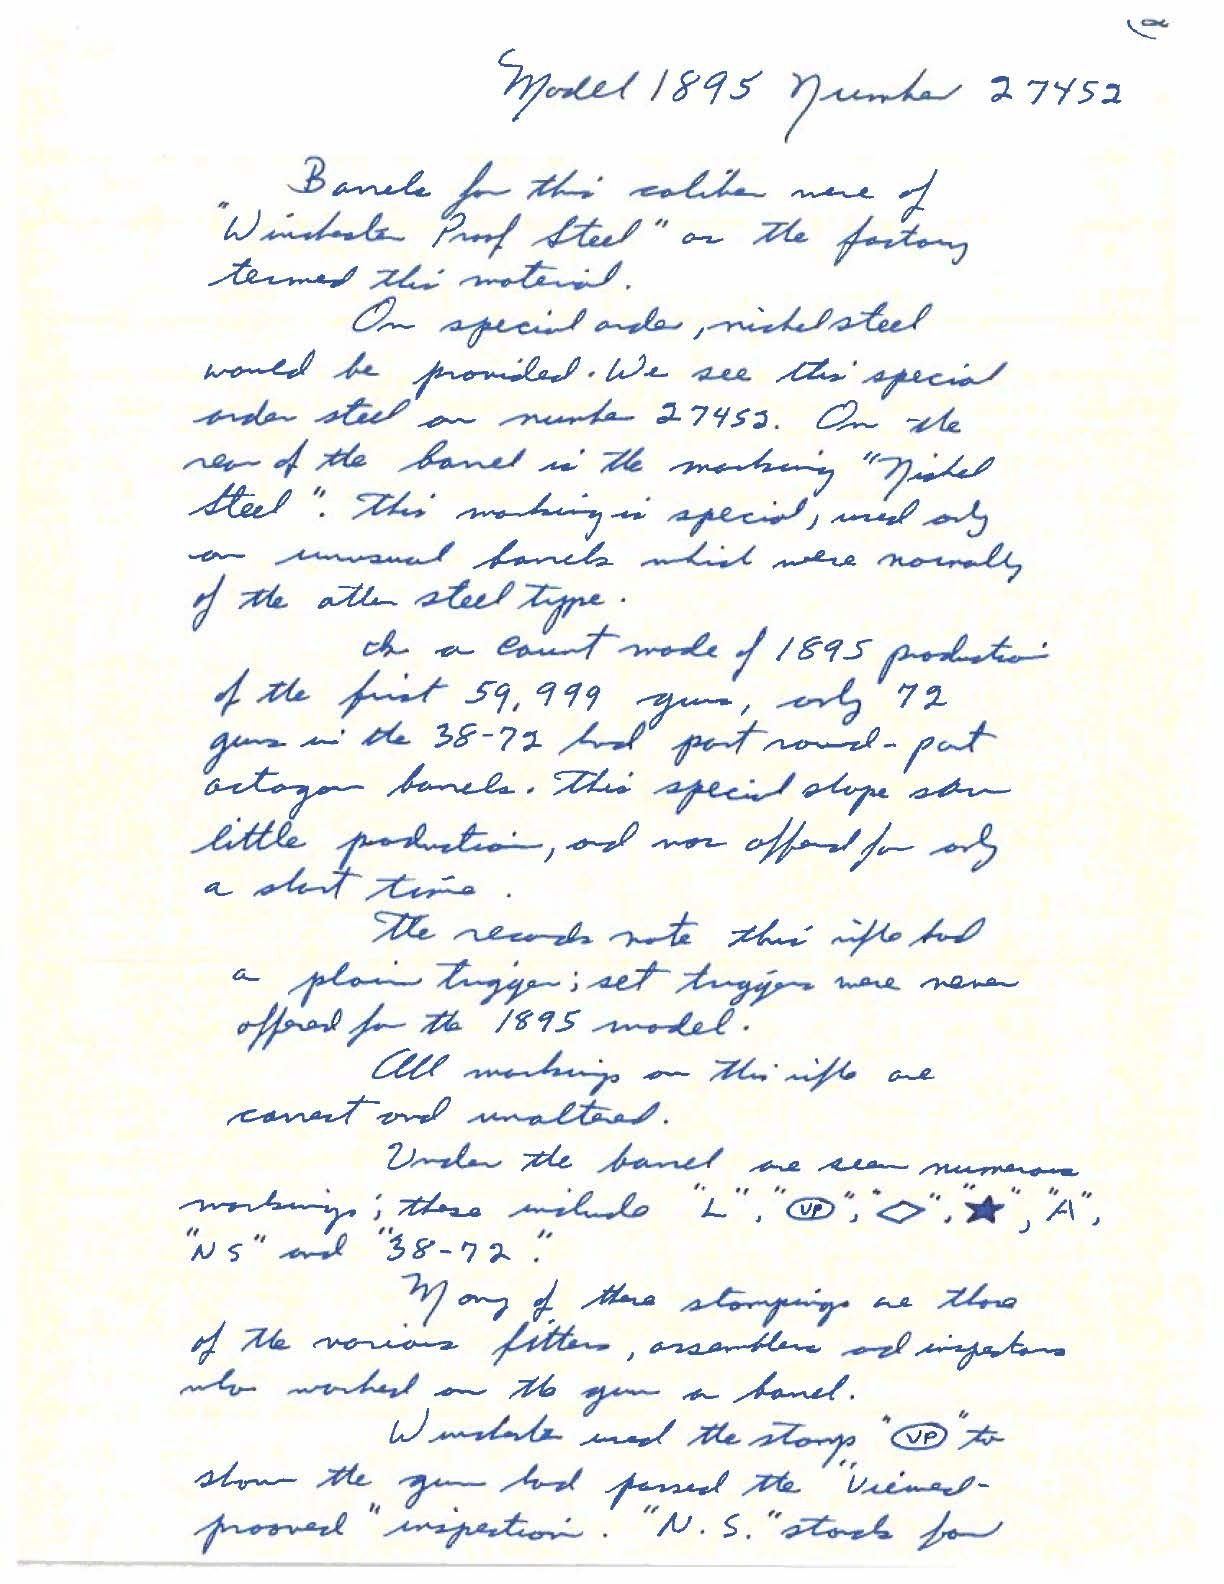 Model 1895 Number 27452
Barrels for this caliber were of
"Winchester Proof Steel" as the factory
termed this material.
On special order, nickel steel
would be provided. We see this special
order steel on number 27452. On the
rear of the barrel is the marking "Nickel
Steel". This marking is special, used only
on unusual barrels which were normally
of the other steel type.
In a count made of 1895 production
of the first 59,999 guns, only 72
guns in the 38-72 had part round-part
octagon barrels. This special shape saw
little production, and was offered for only
a short time.
The records note this rifle had
a plain trigger; set triggers were never
offered for the 1895 model.
All markings on this rifle are
correct and unaltered.
Under the barrel are seen numerous
markings; these include "L", "VP", "◇", "★", "A",
"NS" and "38-72".
Many of these stampings are those
of the various fitters, assemblers and inspectors
who worked on the gun or barrel.
Winchester used the stamp "VP" to
show the gun had passed the "Viewed-
prooved" inspection. "N.S." stands for